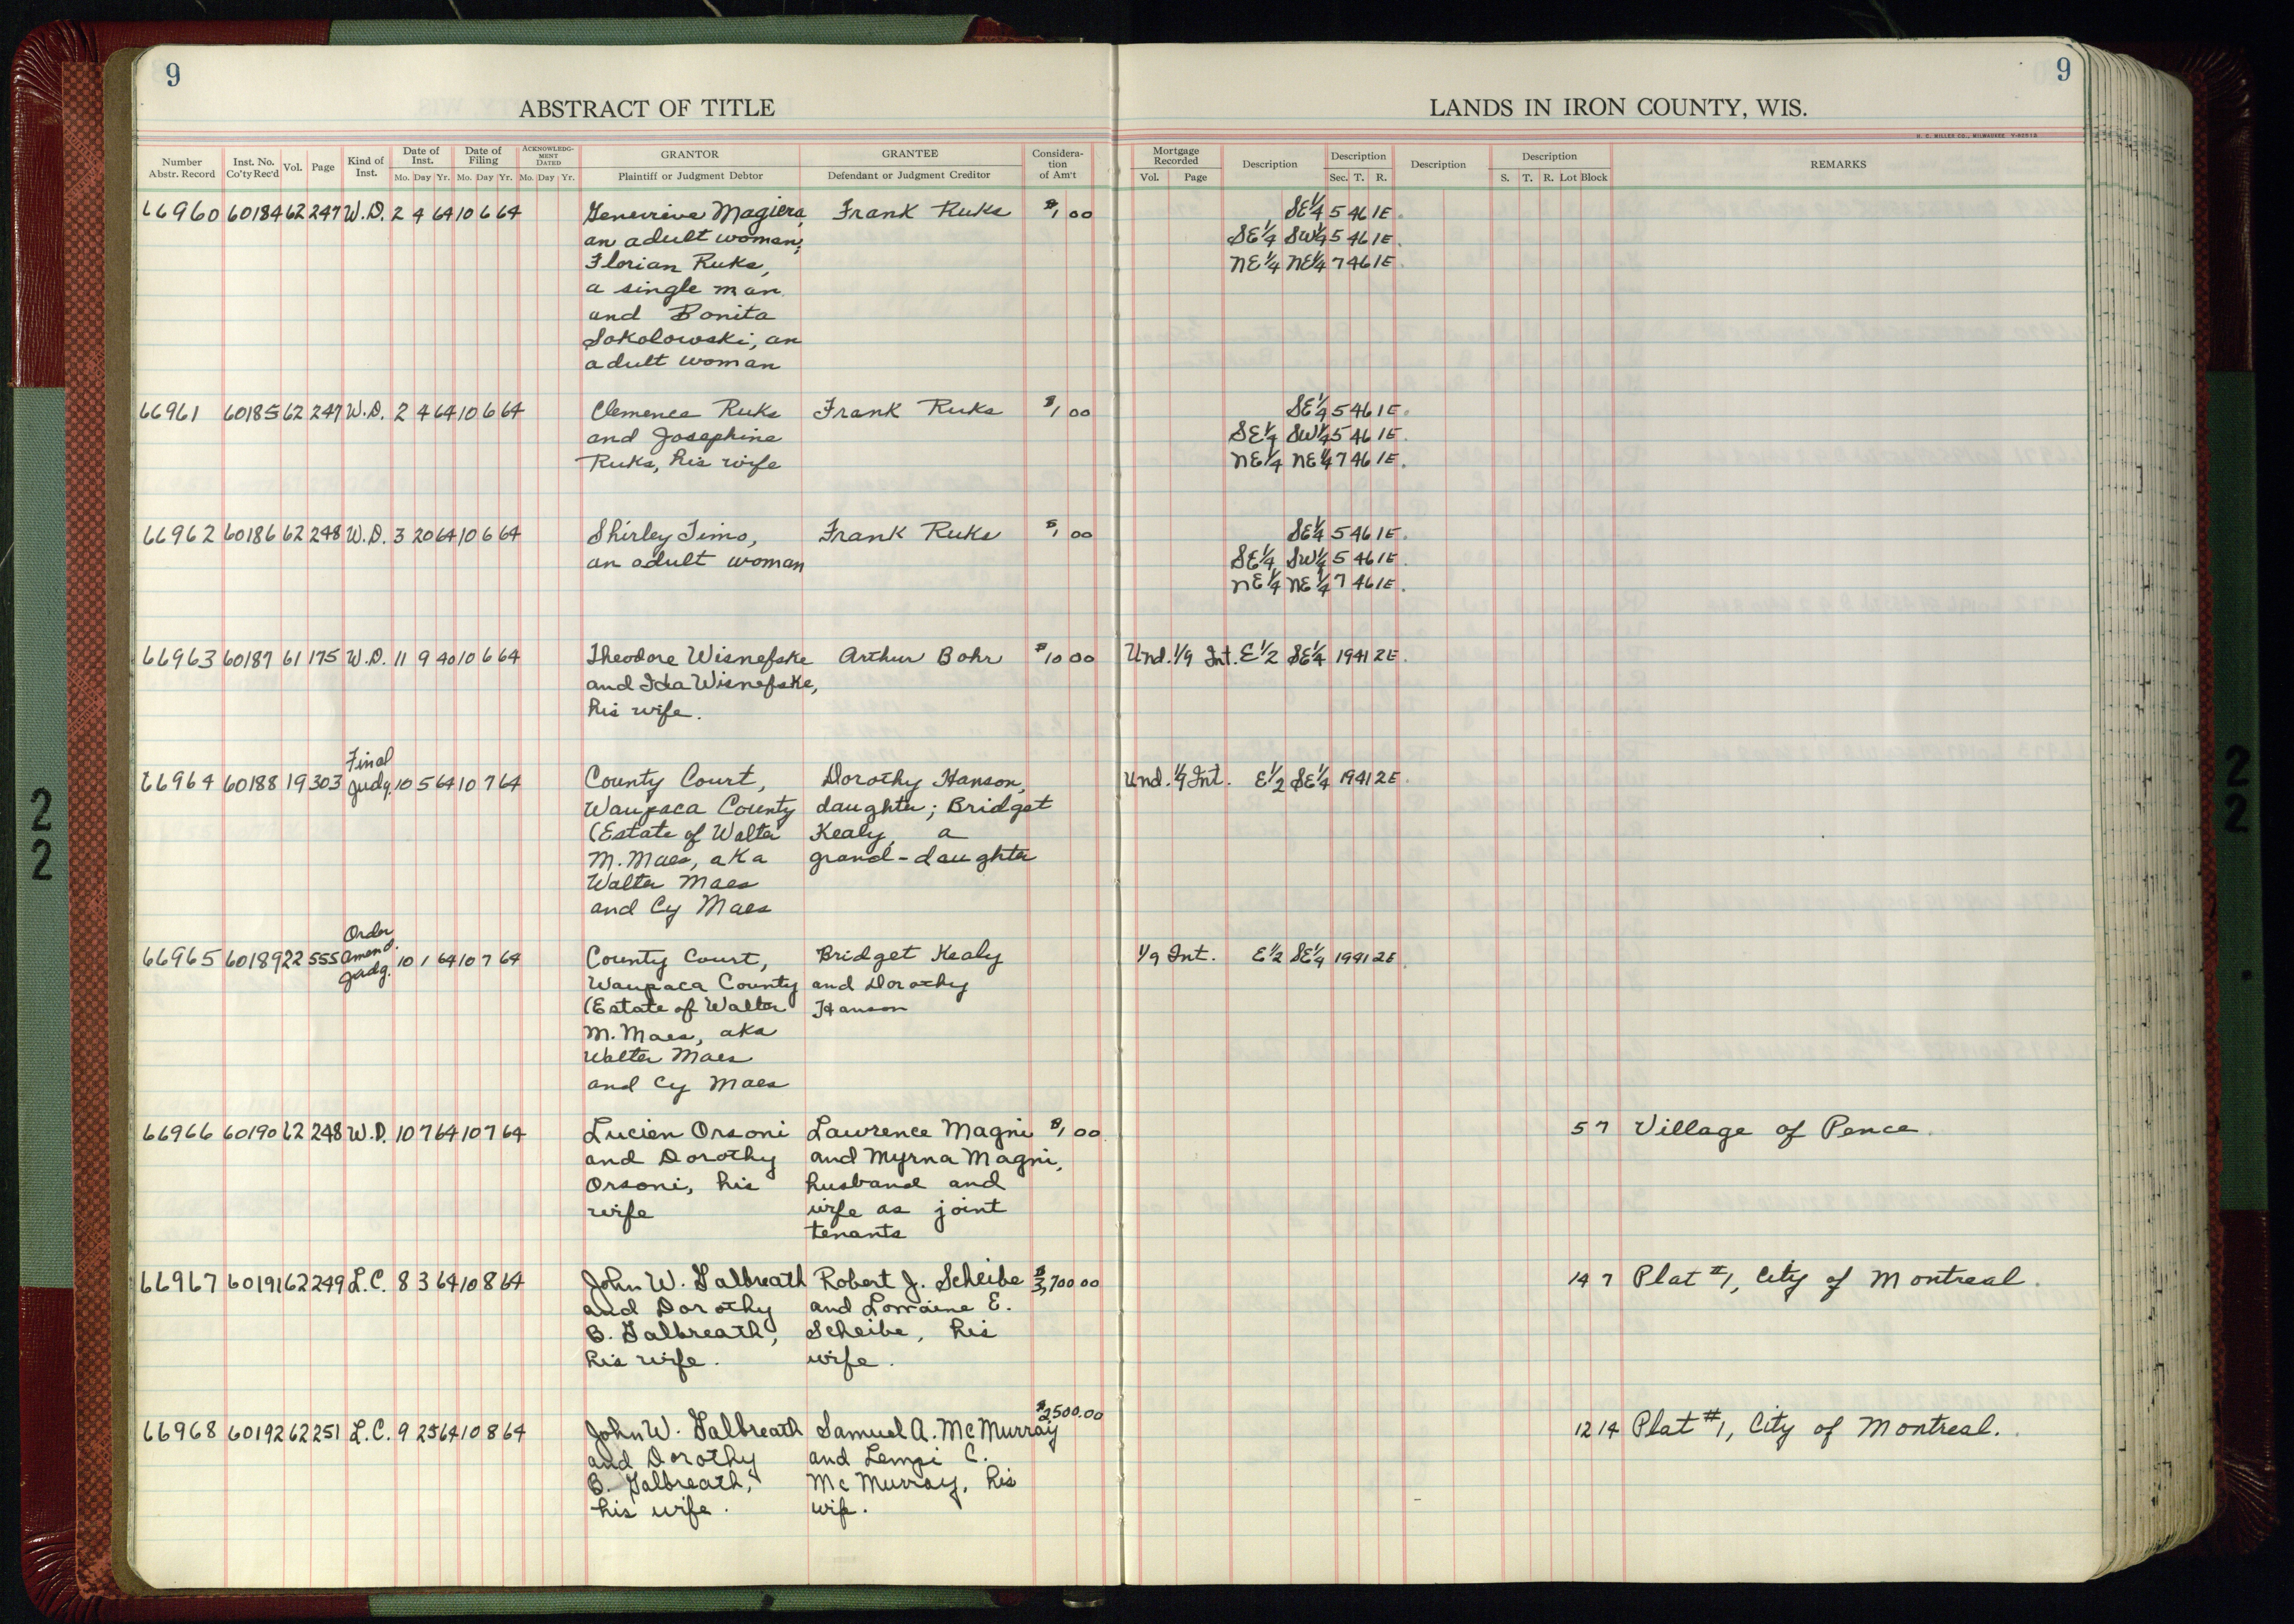 9
9
ABSTRACT OF TITLE
LANDS IN IRON COUNTY, WIS.
H. C. MILLER CO., MILWAUKEE
Number Abstr. Record Inst. No. Co'ty Rec'd Vol. Page Kind of Inst. Date of Inst. Mo. Day Yr. Date of Filing Mo. Day Yr. ACKNOWLEDG-MENT DATED Mo. Day Yr. GRANTOR Plaintiff or Judgment Debtor GRANTEE Defendant or Judgment Creditor Considera-tion of Am't Mortgage Recorded Vol. Page Description Description Sec. T. R. Description Description S. T. R. Lot Block REMARKS
66960 60184 62 247 W.D. 2 4 64 10 6 64 Genevieve Magiera, Frank Ruks $1,00 SE¼ 5 46 1E.
an adult woman; SE¼ SW¼ 5 46 1E.
Florian Ruks, NE¼ NE¼ 7 46 1E.
a single man
and Bonita
Sokolowski, an
adult woman
66961 60185 62 247 W.D. 2 4 64 10 6 64 Clemence Ruks Frank Ruks $1,00 SE¼ 5 46 1E.
and Josephine SE¼ SW¼ 5 46 1E.
Ruks, his wife NE¼ NE¼ 7 46 1E.
66962 60186 62 248 W.D. 3 20 64 10 6 64 Shirley Timo, Frank Ruks $1,00 SE¼ 5 46 1E.
an adult woman SE¼ SW¼ 5 46 1E.
NE¼ NE¼ 7 46 1E.
66963 60187 61 175 W.D. 11 9 40 10 6 64 Theodore Wisnefske Arthur Bohr $10 00 Und. 1/9 Int. E½ SE¼ 19 41 2E.
and Ida Wisnefske,
his wife.
Final
66964 60188 19 303 Judg. 10 5 64 10 7 64 County Court, Dorothy Hanson, Und. 1/9 Int. E½ SE¼ 19 41 2E.
Waupaca County daughter; Bridget
(Estate of Walter Kealy, a
M. Maes, aka grand-daughter
Walter Maes
and Cy Maes
Order
66965 60189 22 555 Amend. Judg. 10 1 64 10 7 64 County Court, Bridget Kealy 1/9 Int. E½ SE¼ 19 41 2E.
Waupaca County and Dorothy
(Estate of Walter Hanson
M. Maes, aka
Walter Maes
and Cy Maes
66966 60190 62 248 W.D. 10 7 64 10 7 64 Lucien Orsoni Lawrence Magni $1,00 5 7 Village of Pence.
and Dorothy and Myrna Magni,
Orsoni, his husband and
wife wife as joint
tenants
66967 60191 62 249 L.C. 8 3 64 10 8 64 John W. Galbreath Robert J. Scheibe $3,700 00 14 7 Plat #1, City of Montreal.
and Dorothy and Lorraine E.
B. Galbreath, Scheibe, his
his wife. wife.
$2500.00
66968 60192 62 251 L.C. 9 25 64 10 8 64 John W. Galbreath Samuel A. McMurray 12 14 Plat #1, City of Montreal.
and Dorothy and Lempi C.
B. Galbreath, McMurray, his
his wife. wife.
22
22